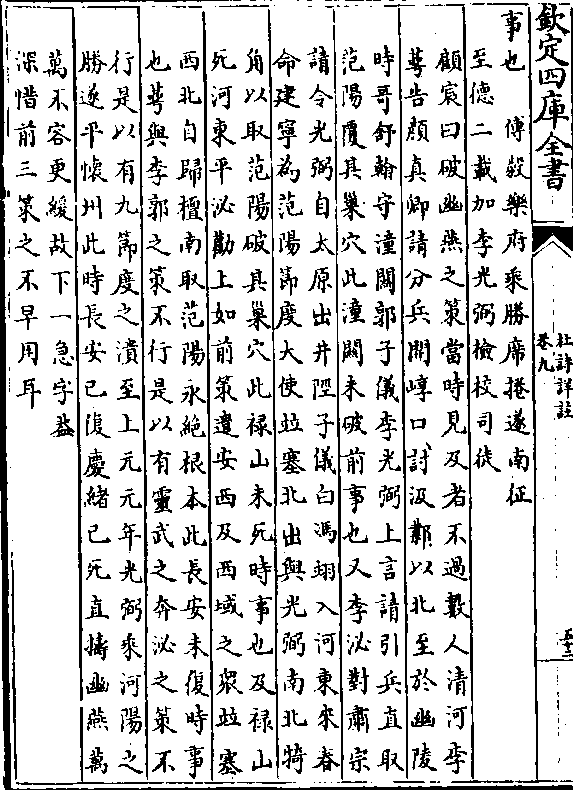 欽定四庫全書
杜詩詳註
卷九
事也　傅毅樂府乘勝席捲遂南征
至德二載加李光弼檢校司徒
顧宸曰破幽燕之策當時見及者不過數人清河李
蕚告顔真卿請分兵開崞口討汲鄴以北至於幽陵
時哥舒翰守潼關郭子儀李光弼上言請引兵直取
范陽覆其巢穴此潼關未破前事也又李泌對肅宗
請令光弼自太原出井陘子儀自馮翊入河東來春
命建寧為范陽節度大使竝塞北出與光弼南北犄
角以取范陽破其巢穴此禄山未死時事也及禄山
死河東平泌勸上如前策遣安西及西域之衆竝塞
西北自歸檀南取范陽永絶根本此長安未復時事
也蕚與李郭之策不行是以有靈武之奔泌之策不
行是以有九節度之潰至上元元年光弼乘河陽之
勝遂平懷州此時長安已復慶緒已死直擣幽燕萬
萬不容更緩故下一急字益
深惜前三策之不早用耳